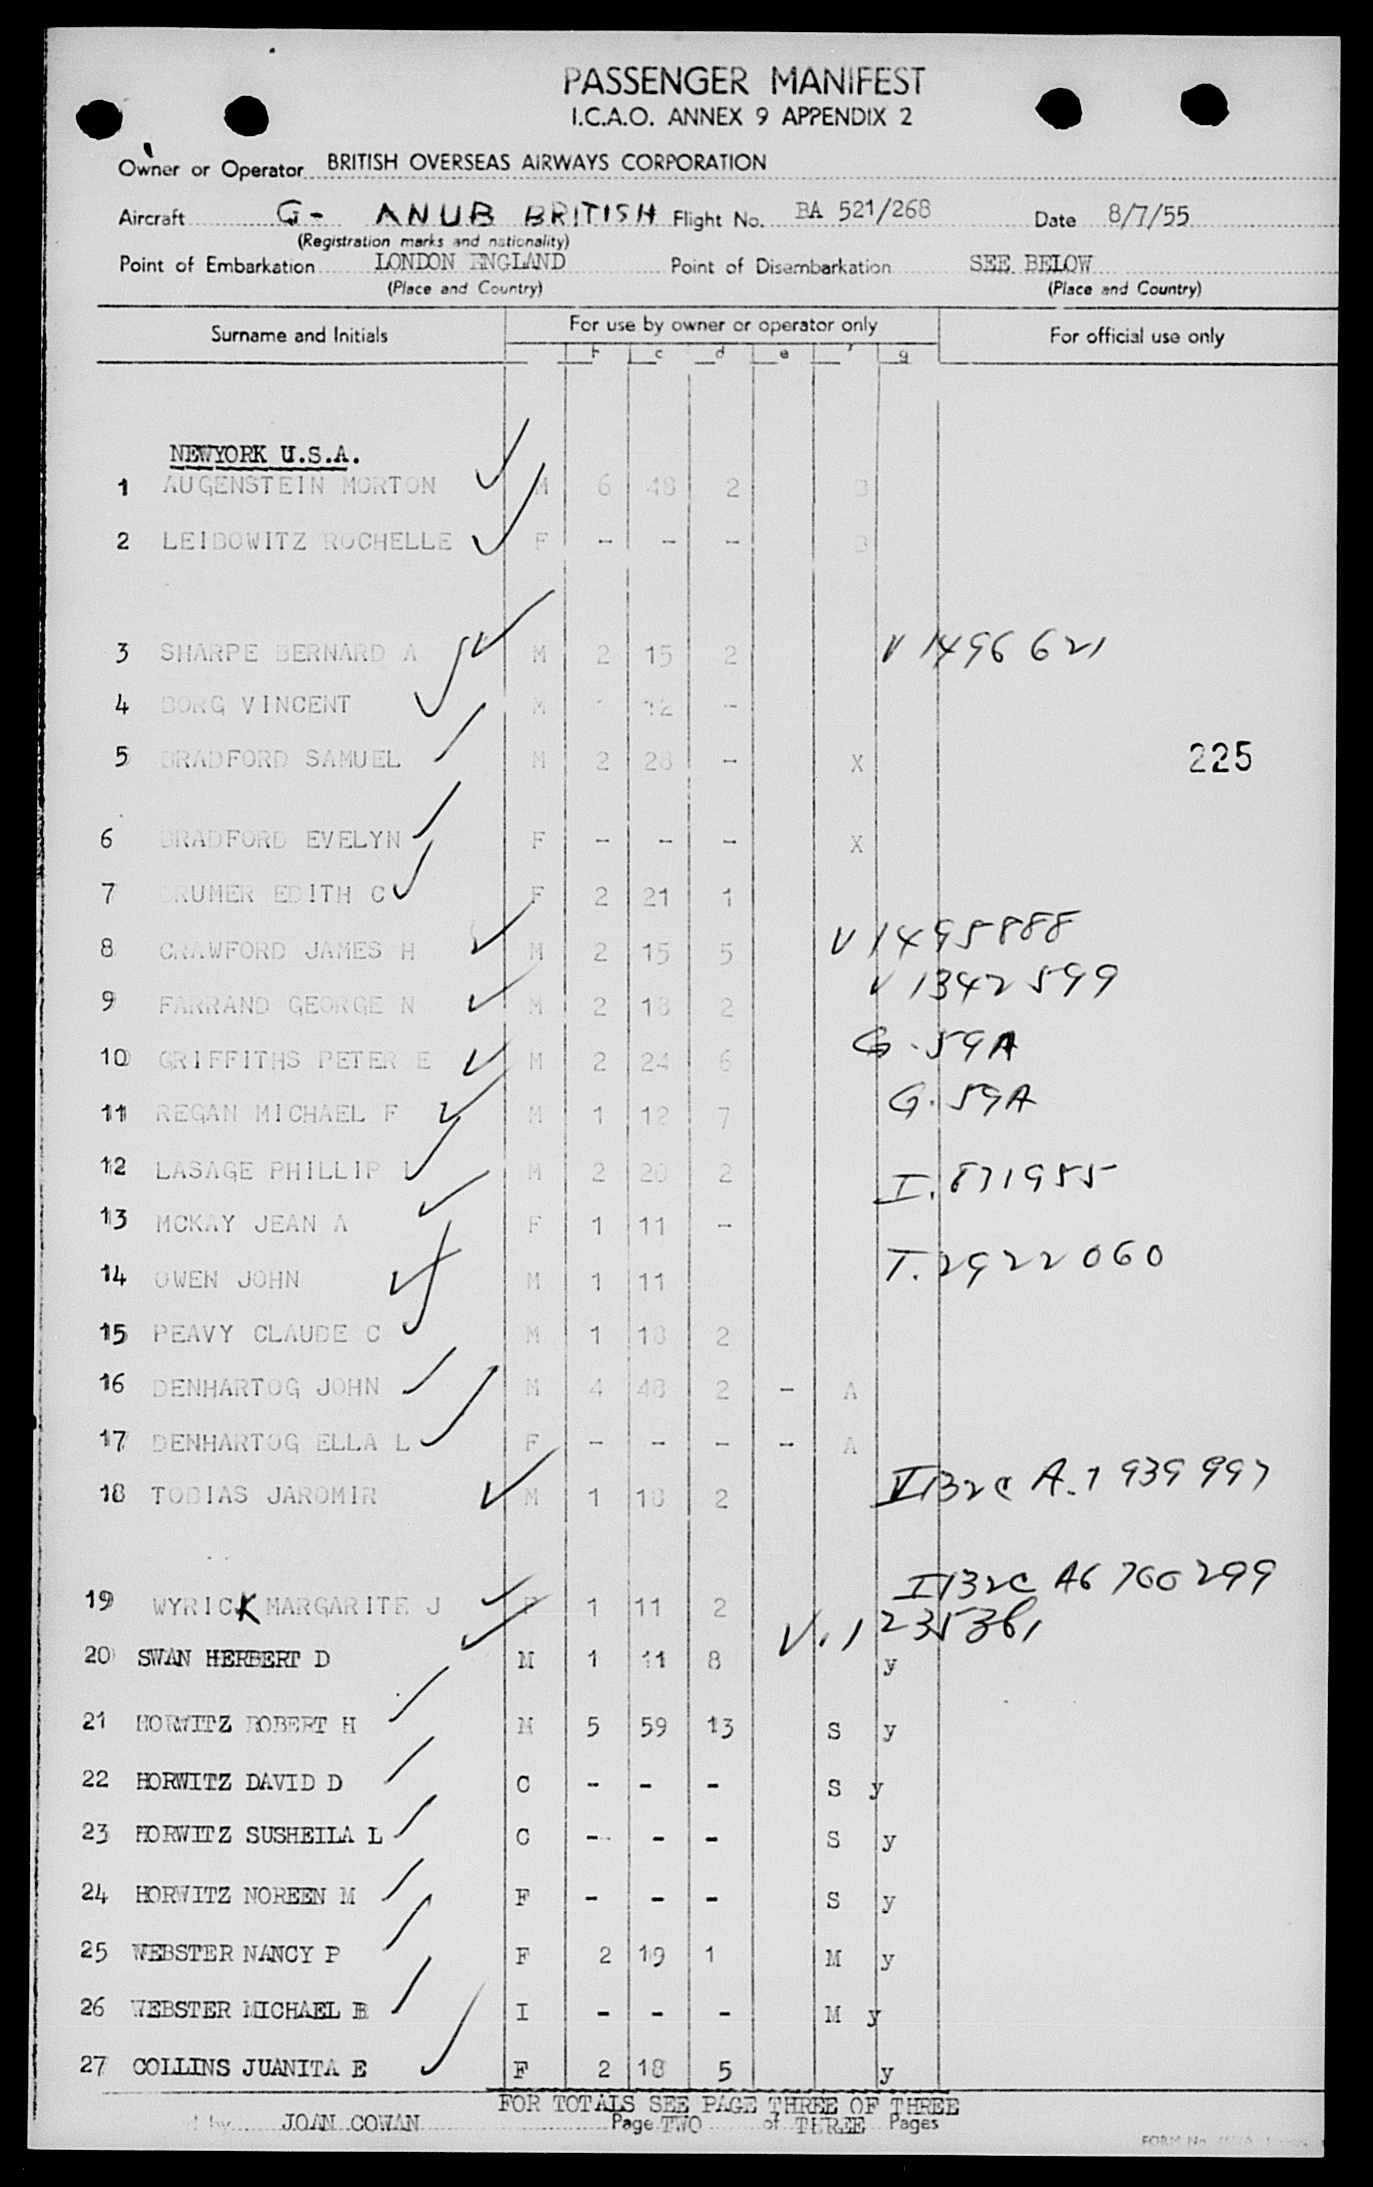 PASSENGER MANIFEST
I.C.A.O. ANNEX 9 APPENDIX 2
Owner or Operator BRITISH OVERSEAS AIRWAYS CORPORATION
Aircraft G- ANUB BRITISH Flight No. BA 521/268 Date 8/7/55
(Registration marks and nationality)
Point of Embarkation LONDON ENGLAND Point of Disembarkation SEE BELOW
(Place and Country) (Place and Country)
Surname and Initials For use by owner or operator only For official use only
b c d e f g
NEWYORK U.S.A.
1 AUGENSTEIN MORTON M 6 48 2 B
2 LEIBOWITZ ROCHELLE F - - - B
3 SHARPE BERNARD A M 2 15 2 V 1496621
4 BORG VINCENT M 12 -
5 BRADFORD SAMUEL M 2 28 - X 225
6 BRADFORD EVELYN F - - - X
7 RUMER EDITH C F 2 21 1
8 CRAWFORD JAMES H M 2 15 5 V 1495888
9 FARRAND GEORGE N M 2 18 2 V 1342599
10 GRIFFITHS PETER E M 2 24 6 G.59A
11 REGAN MICHAEL F M 1 12 7 G.59A
12 LASAGE PHILLIP L M 2 20 2 I.871955
13 MCKAY JEAN A F 1 11 -
14 OWEN JOHN M 1 11 T.2922060
15 PEAVY CLAUDE C M 1 18 2
16 DENHARTOG JOHN M 4 48 2 - A
17 DENHARTOG ELLA L F - - - - A
18 TOBIAS JAROMIR M 1 18 2 I132c A.7 939 997
19 WYRICK MARGARITE J F 1 11 2 I132c A6 700 299
20 SWAN HERBERT D M 1 11 8 V.1235361 y
21 HORWITZ ROBERT H M 5 59 13 S y
22 HORWITZ DAVID D C - - - S y
23 HORWITZ SUSHEILA L C - - - S y
24 HORWITZ NOREEN M F - - - S y
25 WEBSTER NANCY P F 2 19 1 M y
26 WEBSTER MICHAEL B I - - - M y
27 COLLINS JUANITA E F 2 18 5 y
FOR TOTALS SEE PAGE THREE OF THREE
by JOAN COWAN Page TWO of THREE Pages
FORM No